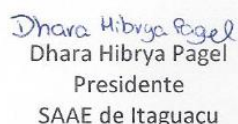 Dhara Hibrya Pagel
Dhara Hibrya Pagel
Presidente
SAAE de Itaguaçu